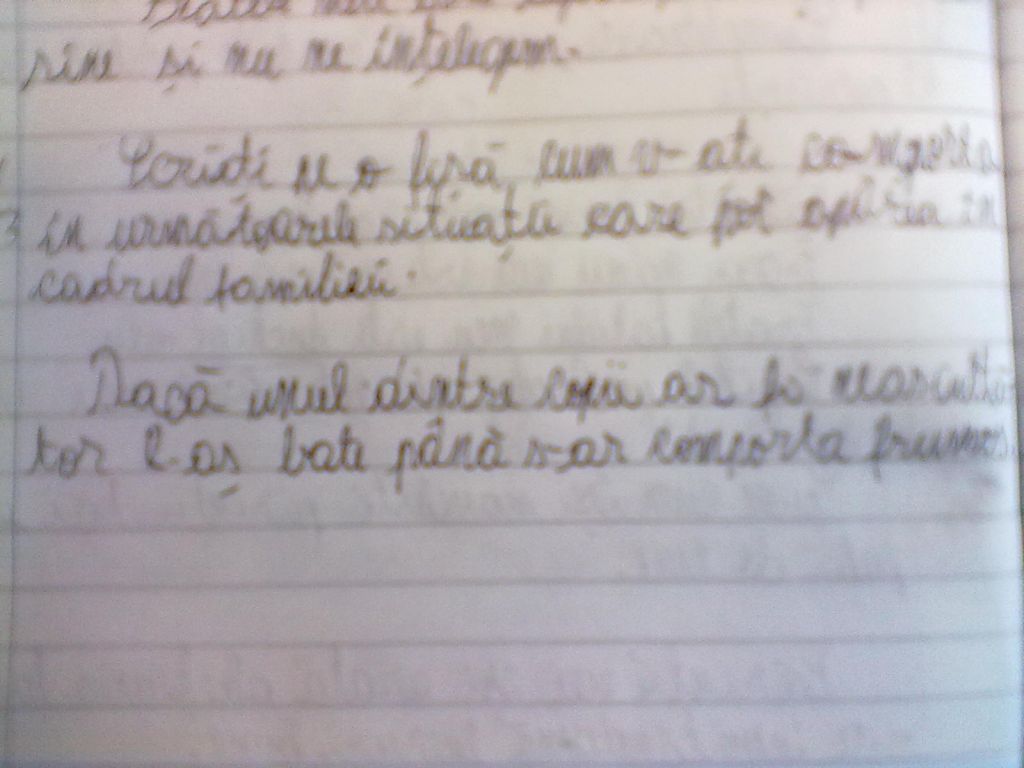 sine și nu ne înțelegem.
Scrieți pe o fișă, cum v-ați comporta
în următoarele situații care pot apărea în
cadrul familiei.
Dacă unul dintre copii ar fi neascultă-
tor l-aș bate până s-ar comporta frumos.